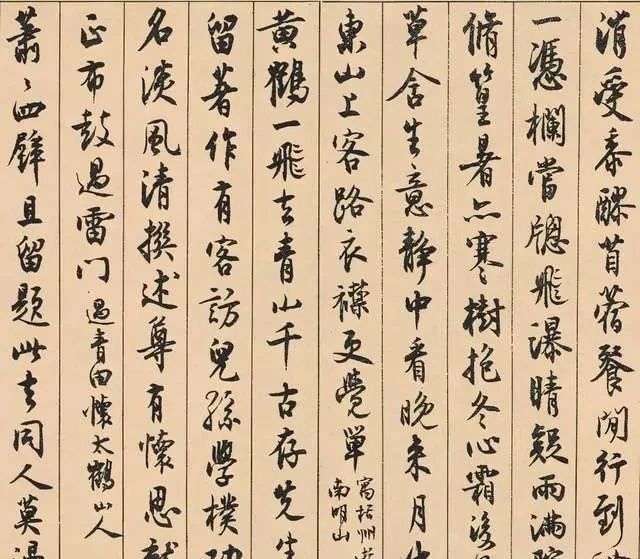 消受黍醪苜蓿餐閒行到
一憑欄當窗飛瀑晴疑雨滿
脩篁暑亦寒樹抱冬心霜後
草含生意靜中看晚來月
東山上客路衣襟更覺單 寓括州 南明山
黃鶴一飛去青山千古存先生
留著作有客訪兒孫學樸
名淡風清撰述尊有懷思就
正布鼓過雷門 過青田懷太鶴山人
蕭〻四壁且留題此去同人莫